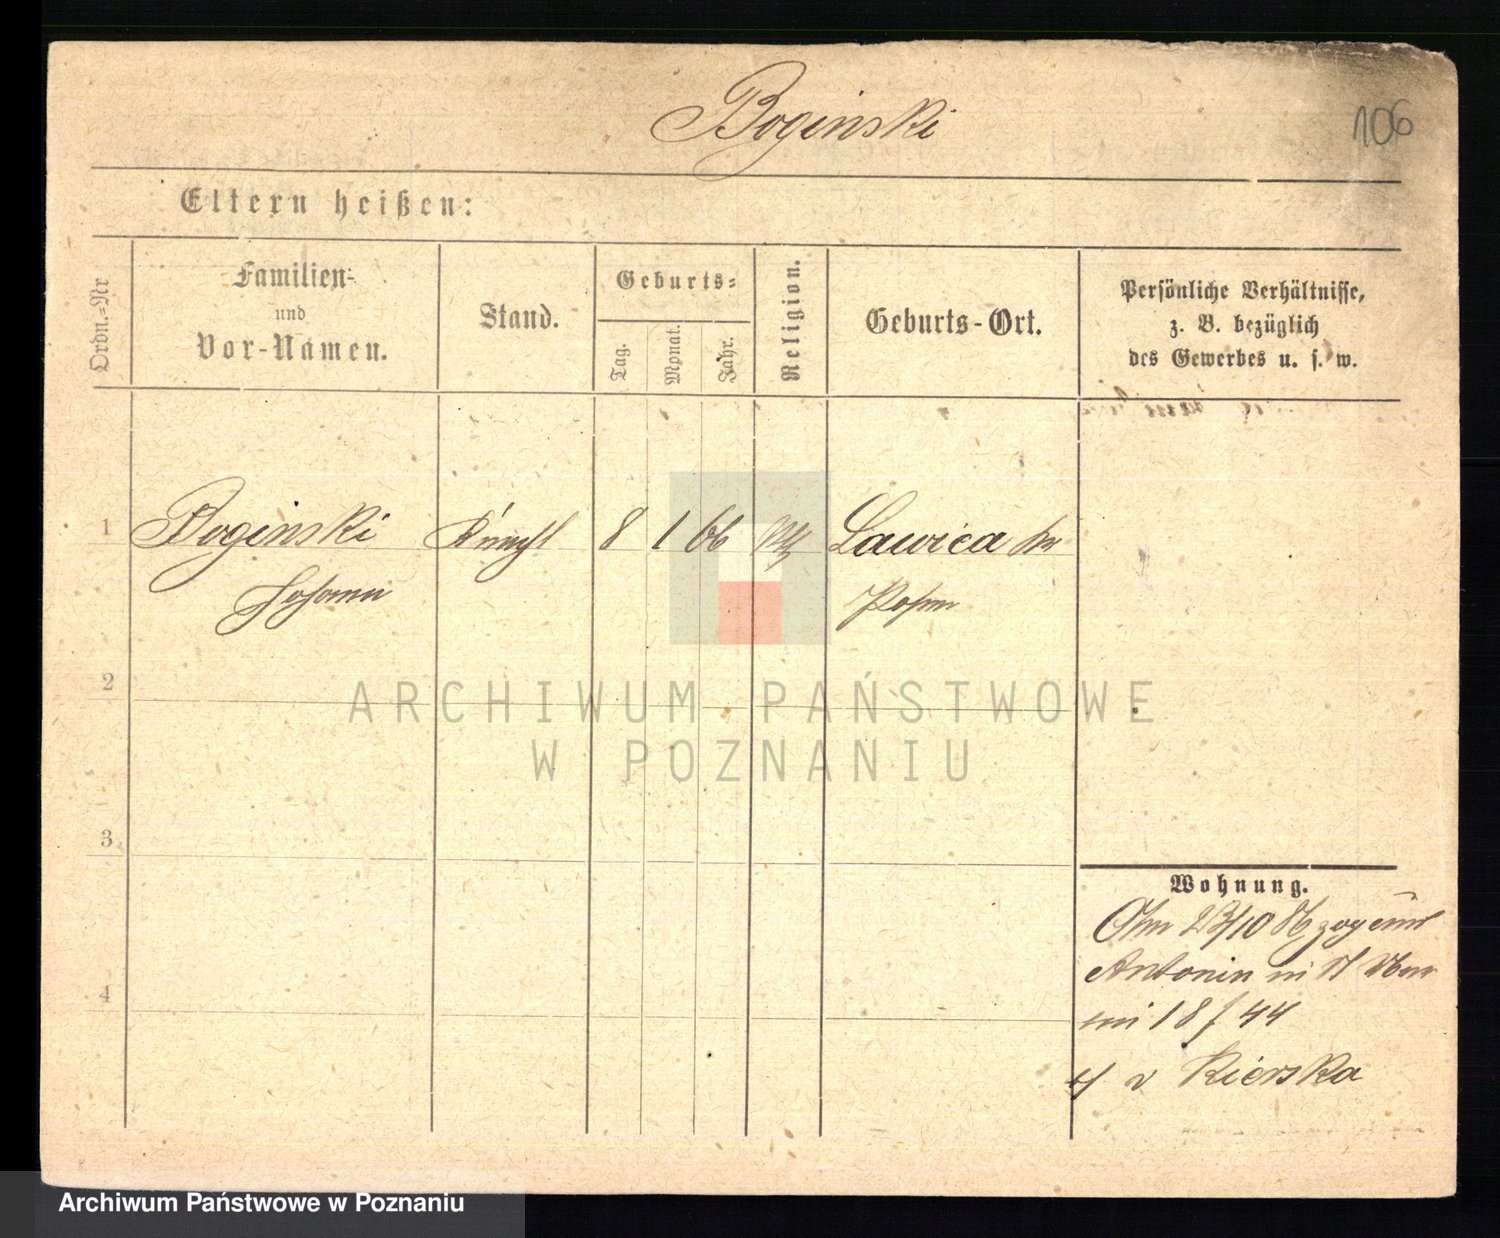 Boginski
106
Eltern heißen:
Ordn.=Nr
Familien=
und
Vor-Namen.
Stand.
Geburts=
Tag.
Monat.
Jahr.
Religion.
Geburts-Ort.
Persönliche Verhältnisse,
z. B. bezüglich
des Gewerbes u. s. w.
1
Boginski
Johann
Knecht
8
1
66
Lawica
Posen
2
ARCHIWUM PAŃSTWOWE
W POZNANIU
3
Wohnung.
23/10
Antonin
4
18 / 44
v Kierska
Archiwum Państwowe w Poznaniu